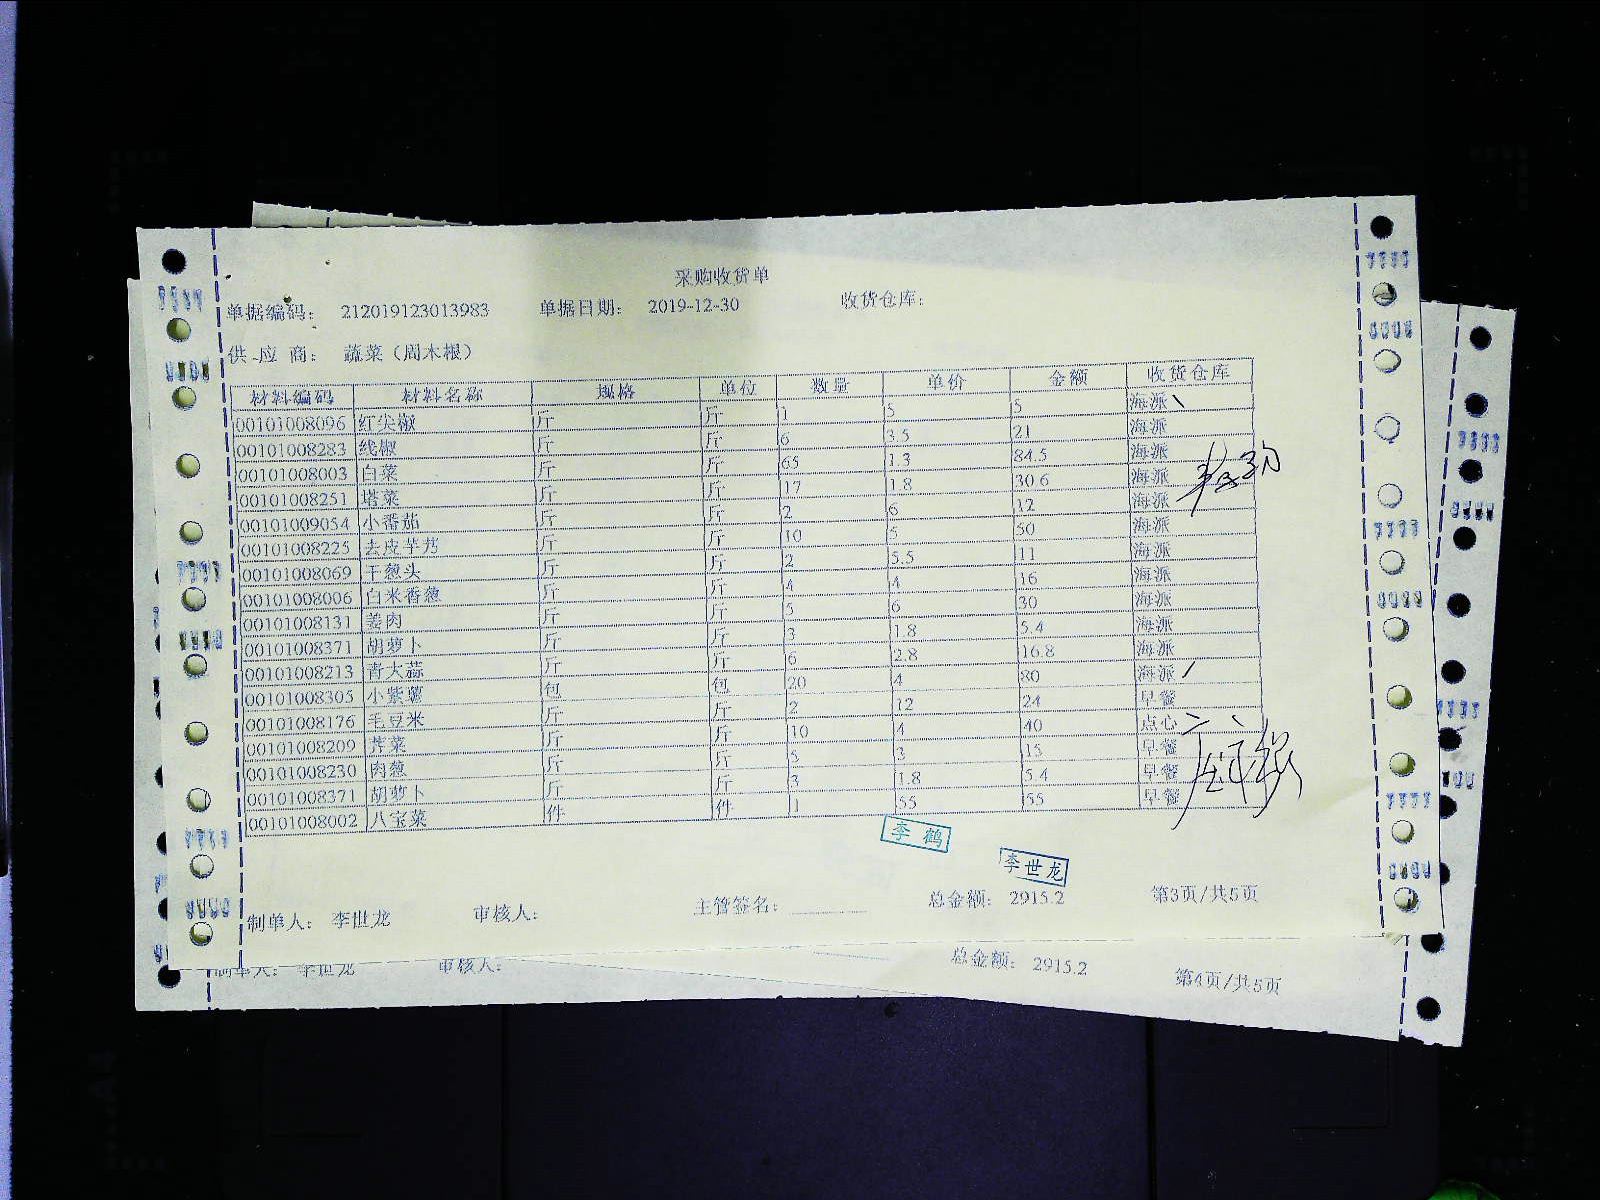 采购收货单
单据编码： 212019123013983 单据日期： 2019-12-30 收货仓库：
供应商： 蔬菜（周木根）
材料编码 材料名称 规格 单位 数量 单价 金额 收货仓库
00101008096 红尖椒 斤 斤 1 5 5 海派
00101008283 线椒 斤 斤 6 3.5 21 海派
00101008003 白菜 斤 斤 65 1.3 84.5 海派
00101008251 塔菜 斤 斤 17 1.8 30.6 海派
00101009054 小番茄 斤 斤 2 6 12 海派
00101008225 去皮芋艿 斤 斤 10 5 50 海派
00101008069 干葱头 斤 斤 2 5.5 11 海派
00101008006 白米香葱 斤 斤 4 4 16 海派
00101008131 姜肉 斤 斤 5 6 30 海派
00101008371 胡萝卜 斤 斤 3 1.8 5.4 海派
00101008213 青大蒜 斤 斤 6 2.8 16.8 海派
00101008305 小紫薯 包 包 20 4 80 海派
00101008176 毛豆米 斤 斤 2 12 24 早餐
00101008209 芹菜 斤 斤 10 4 40 点心
00101008230 肉葱 斤 斤 5 3 15 早餐
00101008371 胡萝卜 斤 斤 3 1.8 5.4 早餐
00101008002 八宝菜 件 件 1 55 55 早餐
李鹤
李世龙
制单人： 李世龙 审核人： 主管签名： 总金额： 2915.2 第3页/共5页
制单人： 李世龙 审核人： 总金额： 2915.2 第4页/共5页